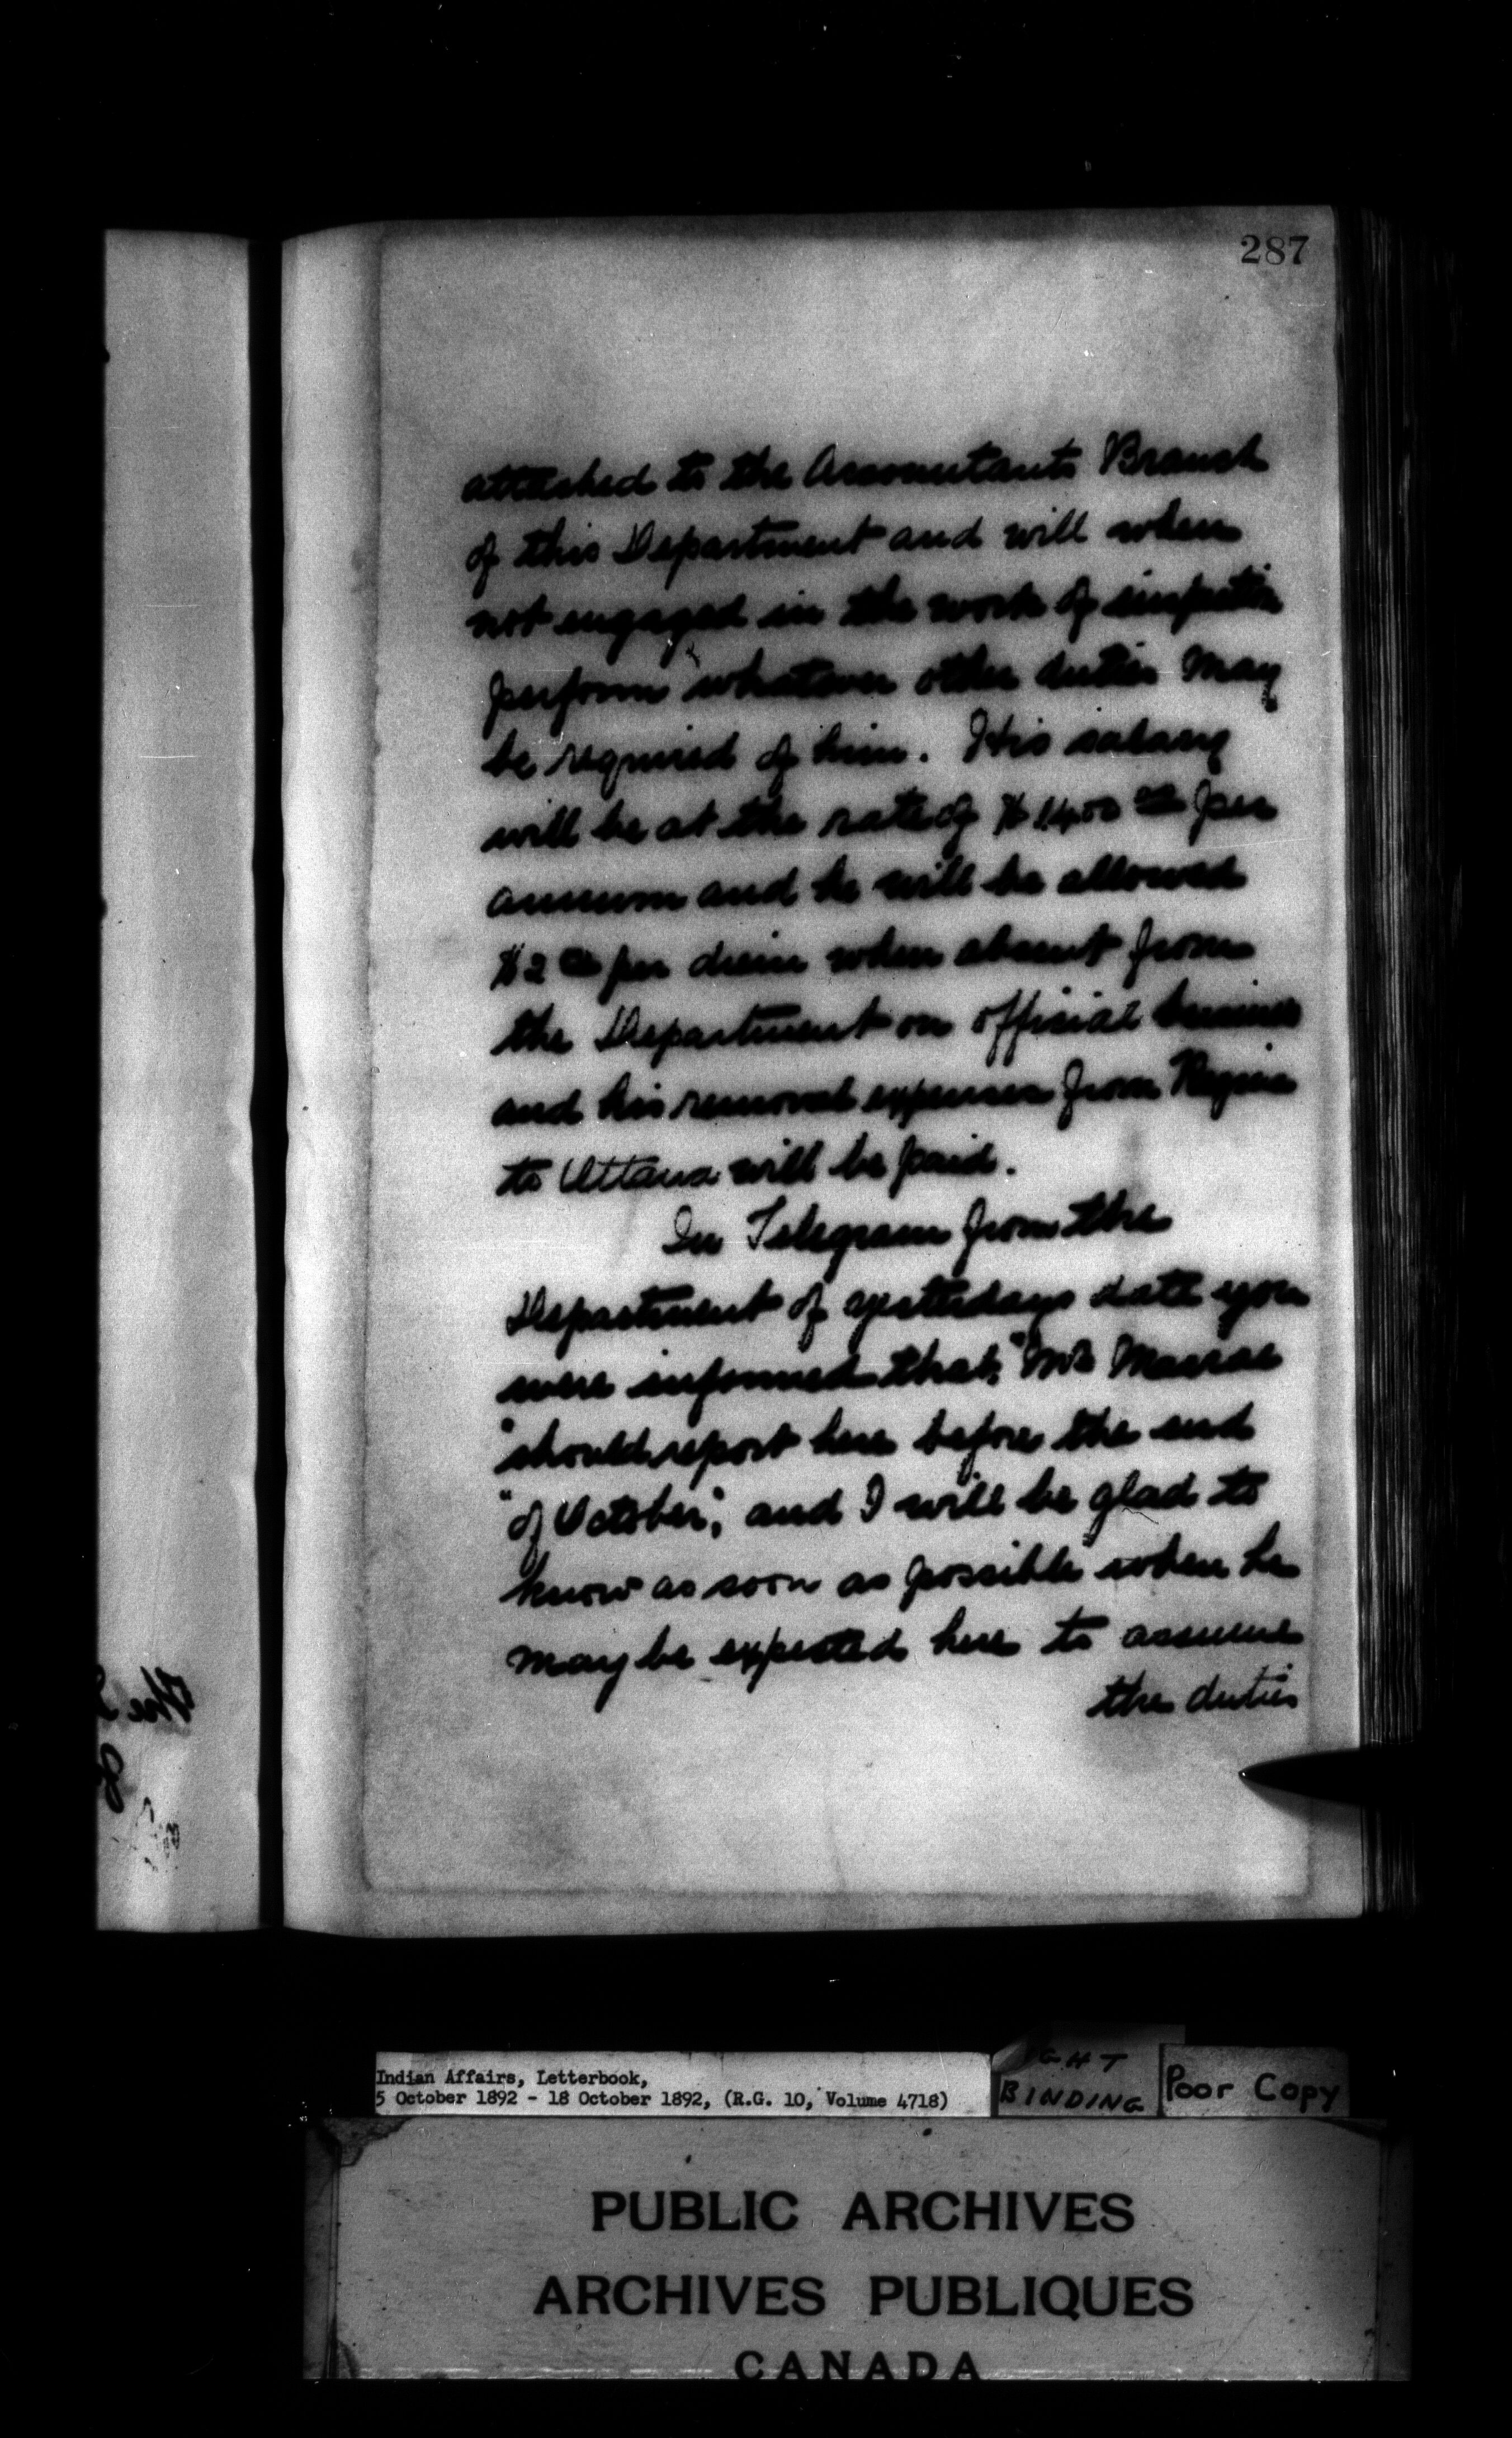 287
attached to the Accountants Branch
of this Department and will when
not engaged in the work of inspection
perform whatever other duties may
be required of him. His salary
will be at the rate of $1400 00 per
annum and he will be allowed
$2 00 per diem when absent from
the Department on official business
and his removal expenses from Regina
to Ottawa will be paid.
In Telegram from the
Department of yesterdays date you
were informed that, "Mr Macrae
"should report here before the end
"of October", and I will be glad to
know as soon as possible when he
may be expected here to assume
the duties
the
Indian Affairs, Letterbook,
5 October 1892 - 18 October 1892, (R.G. 10, Volume 4718)
GHT
BINDING
Poor Copy
PUBLIC ARCHIVES
ARCHIVES PUBLIQUES
CANADA